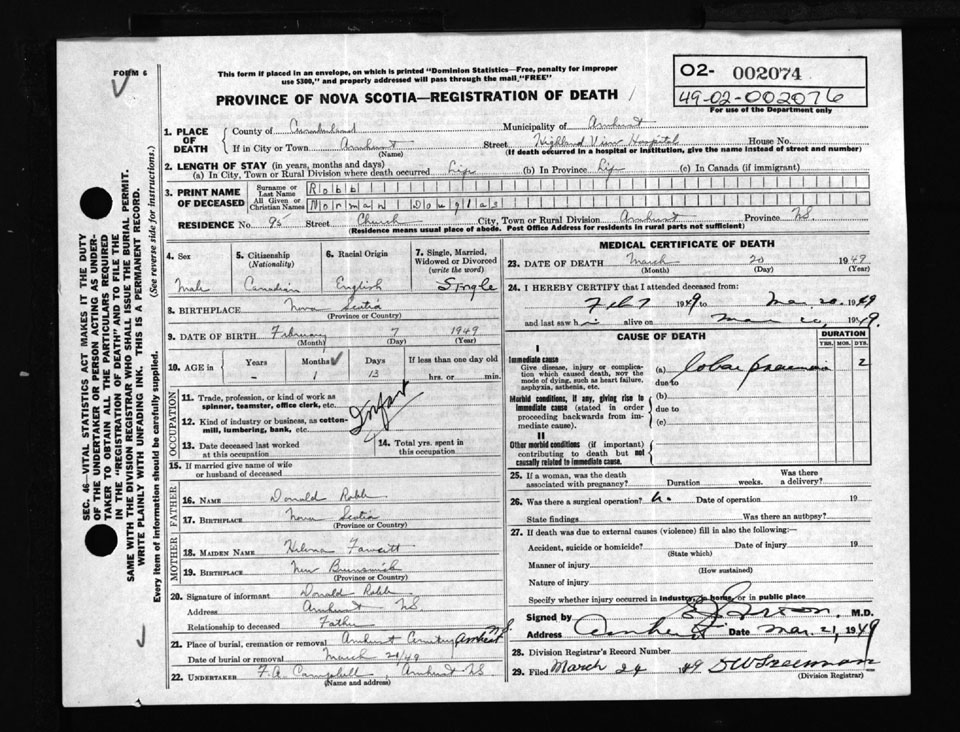 FORM 6
This form if placed in an envelope, on which is printed "Dominion Statistics—Free, penalty for improper
use $300," and properly addressed will pass through the mail "FREE"
O2- 002074
49-02-002076
For use of the Department only
PROVINCE OF NOVA SCOTIA—REGISTRATION OF DEATH
SEC. 46—VITAL STATISTICS ACT MAKES IT THE DUTY
OF THE UNDERTAKER OR PERSON ACTING AS UNDER-
TAKER TO OBTAIN ALL THE PARTICULARS REQUIRED
IN THE "REGISTRATION OF DEATH" AND TO FILE THE
SAME WITH THE DIVISION REGISTRAR WHO SHALL ISSUE THE BURIAL PERMIT.
WRITE PLAINLY WITH UNFADING INK. THIS IS A PERMANENT RECORD.
Every item of information should be carefully supplied. (See reverse side for instructions.)
1. PLACE OF DEATH
County of Cumberland Municipality of Amherst
If in City or Town Amherst Street Highland View Hospital House No.
(Name) (If death occurred in a hospital or institution, give the name instead of street and number)
2. LENGTH OF STAY (in years, months and days)
(a) In City, Town or Rural Division where death occurred Life (b) In Province Life (c) In Canada (if immigrant)
3. PRINT NAME OF DECEASED
Surname or Last Name Robb
All Given or Christian Names Norman Douglas
RESIDENCE No. 95 Street Church City, Town or Rural Division Amherst Province NS.
(Residence means usual place of abode. Post Office Address for residents in rural parts not sufficient)
4. Sex Male
5. Citizenship (Nationality) Canadian
6. Racial Origin English
7. Single, Married, Widowed or Divorced (write the word) Single
8. BIRTHPLACE Nova Scotia
(Province or Country)
9. DATE OF BIRTH February 7 1949
(Month) (Day) (Year)
10. AGE in Years - Months 1 Days 13 If less than one day old hrs. or min.
OCCUPATION
11. Trade, profession, or kind of work as
spinner, teamster, office clerk, etc.
Infant
12. Kind of industry or business, as cotton-
mill, lumbering, bank, etc.
13. Date deceased last worked
at this occupation
14. Total yrs. spent in
this occupation
15. If married give name of wife
or husband of deceased
FATHER
16. NAME Donald Robb
17. BIRTHPLACE Nova Scotia
(Province or Country)
MOTHER
18. MAIDEN NAME Fawcett
19. BIRTHPLACE New Brunswick
(Province or Country)
20. Signature of informant Donald Robb
Address Amherst NS
Relationship to deceased Father
21. Place of burial, cremation or removal Amherst Amherst N.S.
Date of burial or removal March /49
22. UNDERTAKER F. A. Campbell, Amherst NS
(Name and address)
MEDICAL CERTIFICATE OF DEATH
23. DATE OF DEATH March 20 1949
(Month) (Day) (Year)
24. I HEREBY CERTIFY that I attended deceased from:
Feb 7 1949 to Mar 20, 1949
and last saw h alive on Mar 20, 1949.
CAUSE OF DEATH
DURATION
YRS. MOS. DYS.
I
Immediate cause
Give disease, injury or complica-
tion which caused death, NOT the
mode of dying, such as heart failure,
asphyxia, asthenia, etc.
(a) lobar pneumonia 2
due to
Morbid conditions, if any, giving rise to
immediate cause (stated in order
proceeding backwards from im-
mediate cause).
(b)
due to
(c)
II
Other morbid conditions (if important)
contributing to death but not
causally related to immediate cause.
25. If a woman, was the death
associated with pregnancy? Duration weeks. Was there
a delivery?
26. Was there a surgical operation? Date of operation 19
State findings Was there an autopsy?
27. If death was due to external causes (violence) fill in also the following:—
Accident, suicide or homicide? Date of injury 19
(State which)
Manner of injury
(How sustained)
Nature of injury
Specify whether injury occurred in industry, in home, or in public place
Signed by M.D.
Address Amherst Date Mar. 21, 1949
28. Division Registrar's Record Number
29. Filed March 24 49 DW Freeman
(Division Registrar)